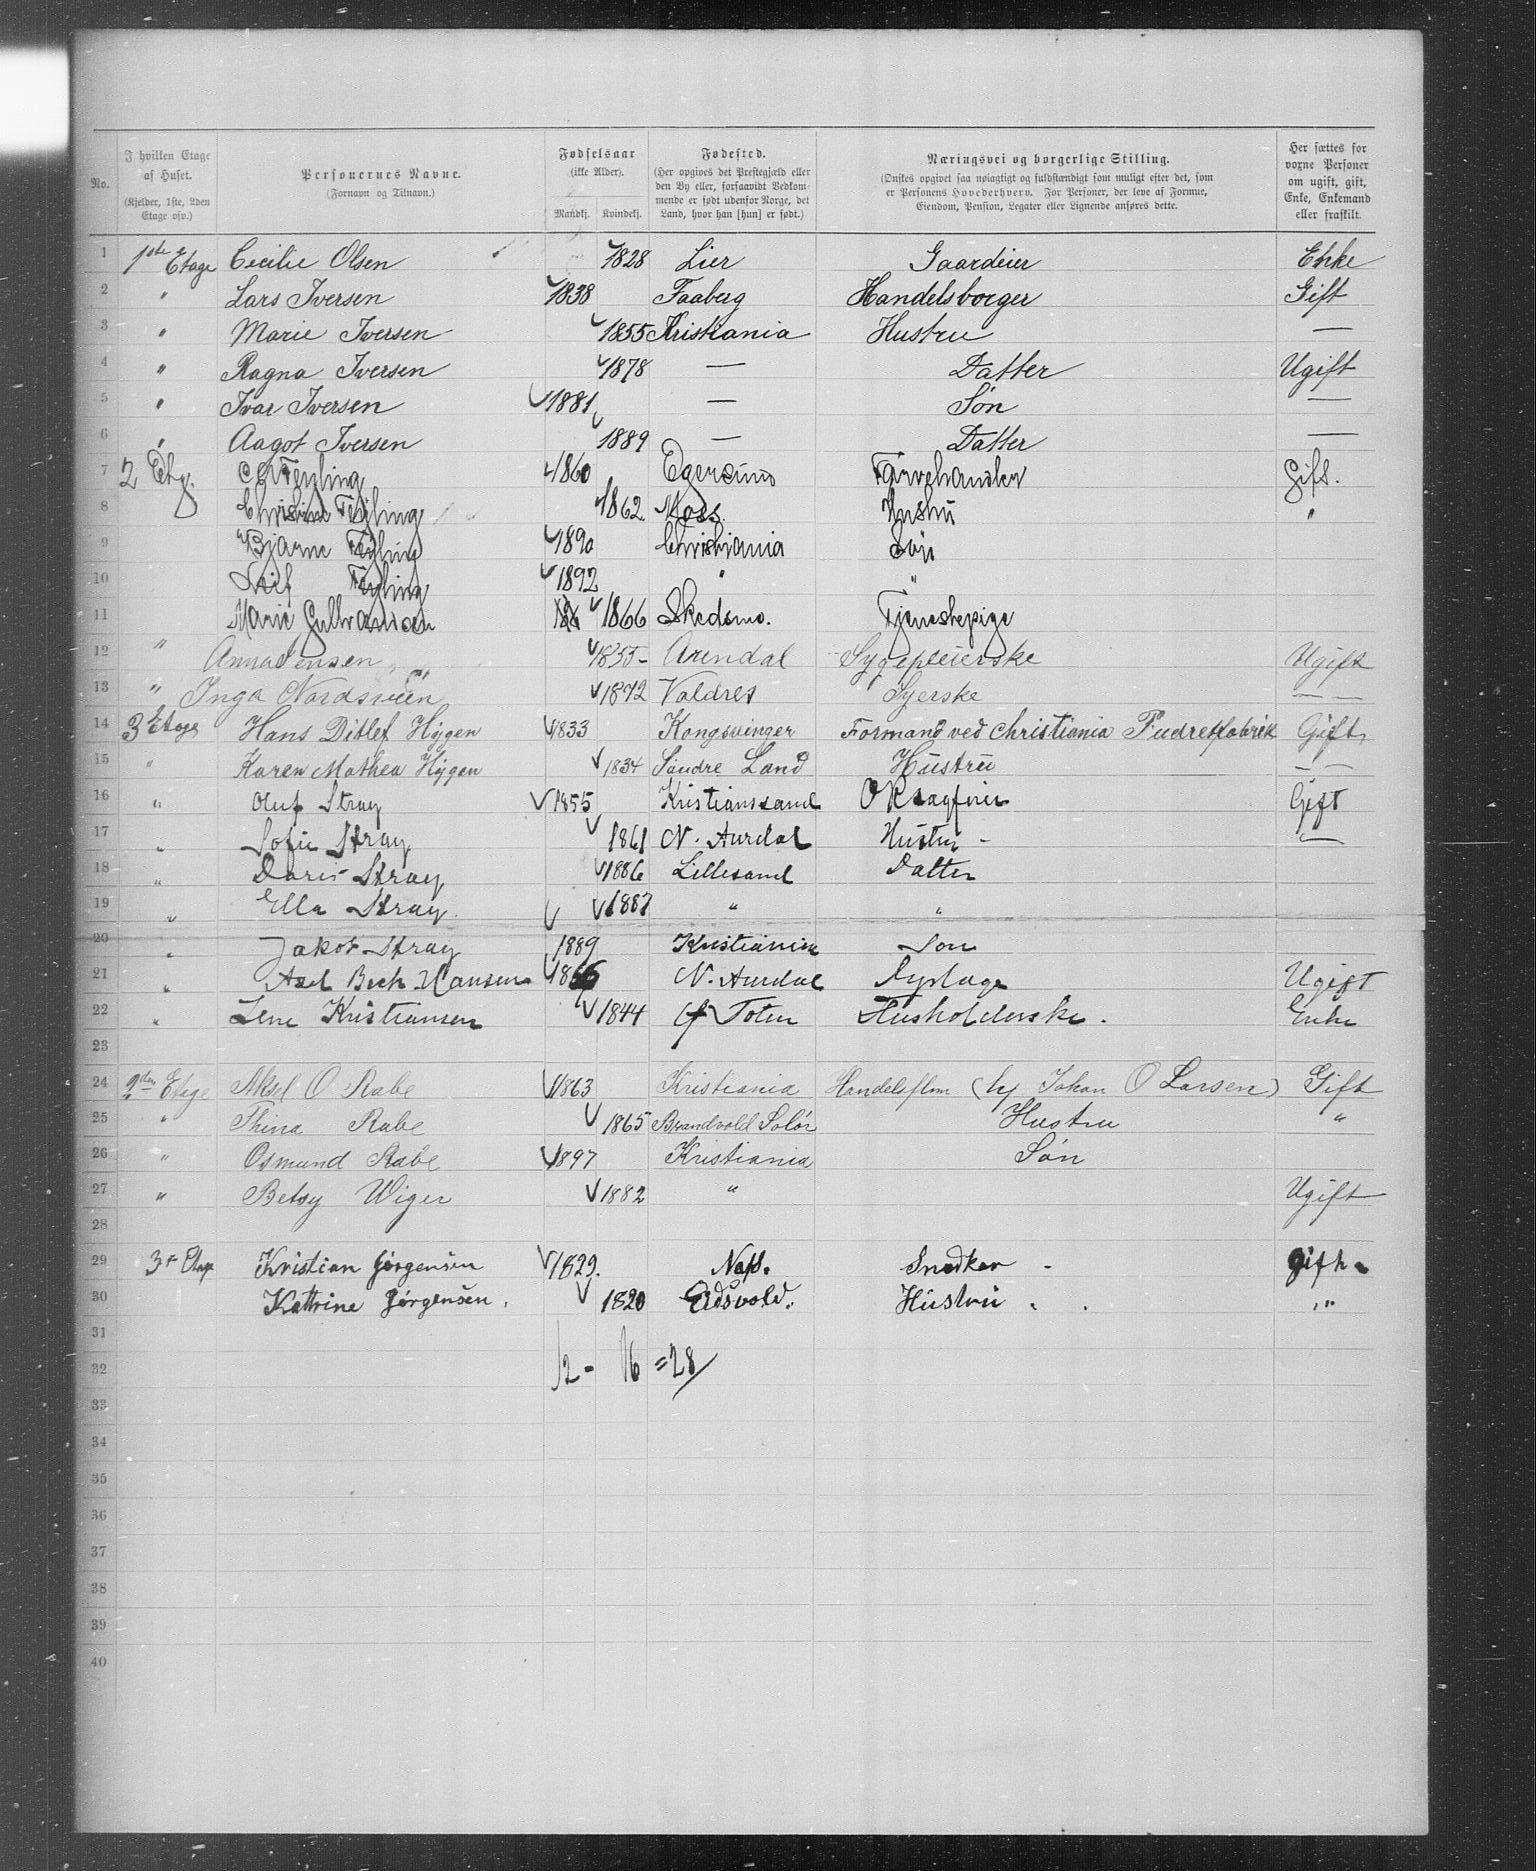 No.	I hvilken Etage af Huset. (Kjelder, 1ste, 2den Etage osv.)	Personernes Navne. (Fornavn og Tilnavn.)	Fødselsaar (ikke Alder). Mandkj. Kvindekj.	Fødested. (Her opgives det Prestegjæld eller den By eller, forsaavidt Vedkommende er født udenfor Norge, det Land, hvor han [hun] er født.)	Næringsvei og borgerlige Stilling. (Ønskes opgivet saa nøiagtigt og fuldstændigt som muligt efter det, som er Personens Hovederhverv. For Personer, der leve af Formue, Eiendom, Pension, Legater eller Lignende anføres dette.)	Her sættes for voxne Personer om ugift, gift, Enke, Enkemand eller fraskilt.
1 1ste Etage Cecilie Olsen 1828 Lier Gaardeier Enke
2 " Lars Iversen 1838 Faaberg Handelsborger Gift
3 " Marie Iversen 1855 Kristiania Hustru —
4 " Ragna Iversen 1878 — Datter Ugift
5 " Ivar Iversen 1881 — Søn —
6 " Aagot Iversen 1889 — Datter —
7 2 Etg. Feyling 1860 Egersund Farvehandler Gift.
8 Christine Feyling 1862 Moss. Hustru "
9 Bjarne Feyling 1890 Christiania Søn
10 Leif Feyling 1892 " "
11 Marie Gulbrandsen 1866 Skedsmo. Tjenestepige
12 " Anna Jensen 1855 - Arendal Sygepleierske Ugift
13 " Inga Nordsveen 1872 Valdres Syerske — —
14 3 Etage Hans Ditlef Hygen 1833 Kongsvinger Formand ved Christiania Pudretfabrik Gift
15 " Karen Mathea Hygen 1834 Søndre Land Hustru — —
16 " Oluf Stray 1855 Kristianssand O R Sagfører Gift
17 " Sofie Stray 1861 N. Aurdal Hustru - —
18 " Doris Stray 1886 Lillesand Datter
19 " Ella Stray. 1887 " "
20 " Jakob Stray 1889 Kristiania Søn
21 " Axel Bech Hansen 1866 N. Aurdal Ugift
22 " Lene Kristiansen 1844 Toten Husholderske. Enke
23
24 2den Etage Aksel O Rabe 1863 Kristiania Handelsflm (hj Johan O Larsen) Gift
25 " Thina Rabe 1865 Brandvold Solør Hustru "
26 " Osmund Rabe 1897 Kristiania Søn
27 " Betsy Wiger 1882 " Ugift
28
29 3' Etage Kristian Jørgensen 1829. Næs. Snedker - Gift.
30 Kathrine Jørgensen. 1820 Eidsvold. Hustru . . "
31
32 12 - 16 = 28
33
34
35
36
37
38
39
40